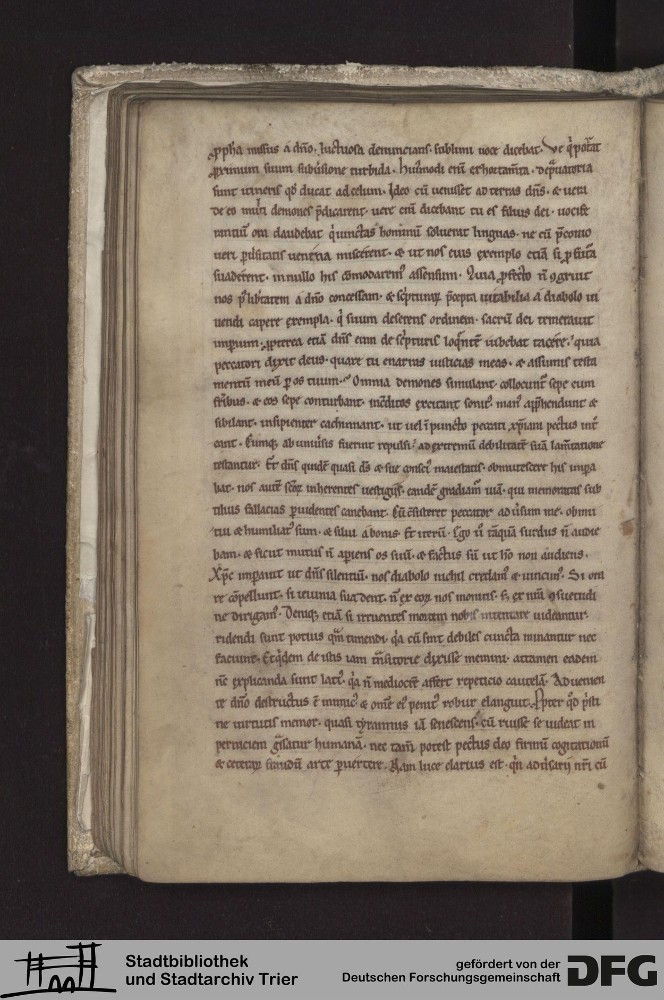 ꝓpha missus a dño. luctuosa denuncians. sublimi uoce dicebat. Ve q̇ potat
ꝓximum suum subuersione turbida. Huiꝰmodi eni exhortam̃ta. dep̃uatoria
sunt itineris qd̓ ducat ad celum. Ideo cū uenisset ad terras dñs. & uera
de eo mul̃ti demones p̃dicarent. uere eni dicebant tu es filius dei. uocife
rantiū ora claudebat q̇ iunctas hominū soluerat linguas. ne cū p̃conio
ueri ꝑuersitatis uenena miscerent. & ut nos eius exemplo etiā si ꝓfutura
suaderent. in nullo his cōmodaremꝰ assensum. Quia ꝓfecto ñ ɔgruit
nos p̃ libertatem a dño concessam. & sc̃pturarꝝ p̃cepta uitabilia a diabolo ui
uendi capere exempla. q̇ suum deserens ordinem. sacrū dei temerauit
imperium. ꝓpterea etiā dñs eum de sc̃pturis loq̃ntē iubebat tacere. quia
peccatori dixit deus. quare tu enarras iusticias meas. & assumis testa
mentū meū ꝑ os tuum. Omnia demones simulant. collocunt̃ sepe cum
fr̃ibus. & eos sepe conturbant. inc̃ditos excitant sonitꝰ. manꝰ app̃hendunt &
sibilant. insipienter cachinnant. ut uel ī puncto peccati xp̃iani pectus int̃
eant. Cumq; ab uniuersis fuerint repulsi. ad extremū debilitatē suā lam̃tatione
testantur. Et dñs quidē quasi dꝰs & sue ɔnsciꝰ maiestatis. obmutescere his impa
bat. nos autē sc̃orꝝ inherentes uestigiis. eandē gradiam̃ uiā. qui memoratas sub
tilius fallacias ꝑuidentes canebant. Cū ɔ̃sisteret peccator aduersum me. obmu
tui & humiliatꝰ sum. & silui a bonis. Et iterū. Ego ū tāquā surdus ñ audie
bam. & sicut mutus ñ aperiens os suū. & factus sū ut hō non audiens.
Xp̃c imperauit ut dñs silentiū. nos diabolo nichil credam̃ & uincimꝰ. Si ora
re cōpellunt. si ieiunia suadent. ñ ex eorꝝ nos monitis. s; ex nr̃a ɔsuetudi
ne dirigam̃. Deniq; etiā si irruentes mortem nobis intentare uideantur.
ridendi sunt potius q̃m timendi. q̇a cū sint debiles cuncta minantur nec
faciunt. Et q̇dem de istis iam trãsitorie dixisse memini. attamen eadem
nc̃ explicanda sunt latiꝰ. q̇a ñ mediocrē affert repeticio cautelā. Aduenien
te dño destructus ē inimicꝰ & omē eiꝰ penitꝰ robur elanguit. Ꝓpter qd̓ p̃sti
ne uirtutis memor. quasi tyrannus iā senescens. cū ruisse se uideat in
perniciem grassatur humanā. nec tam̃ potest pectus deo firmū cogitationū
& ceterarꝝ fraudū arte ꝑuertere. Nam luce clarius est. q̃n aduersarii nr̃i cū
Stadtbibliothek
und Stadtarchiv Trier
gefördert von der
Deutschen Forschungsgemeinschaft
DFG